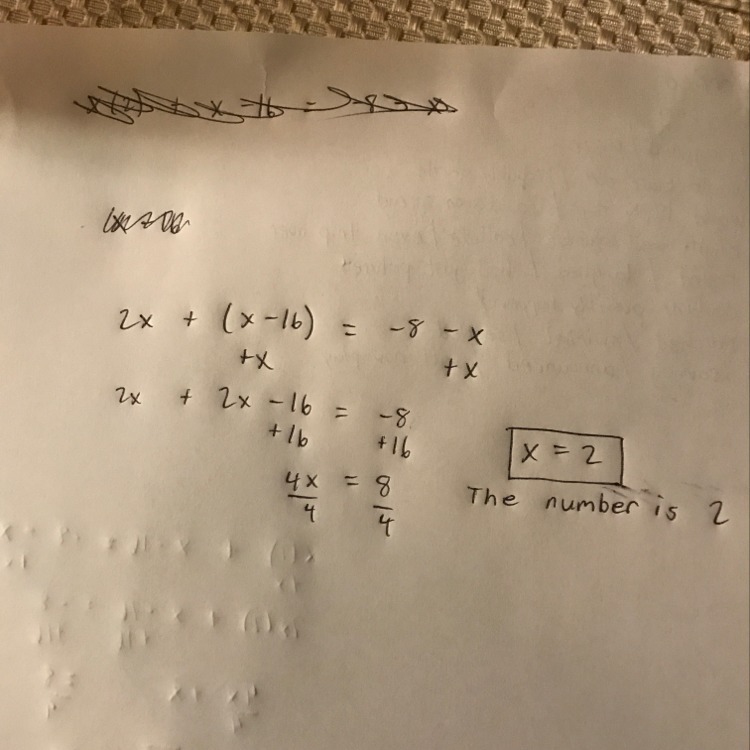 2x + (x-16) = -8 - x
+x +x
2x + 2x -16 = -8
+16 +16
4x/4 = 8/4
x = 2
The number is 2